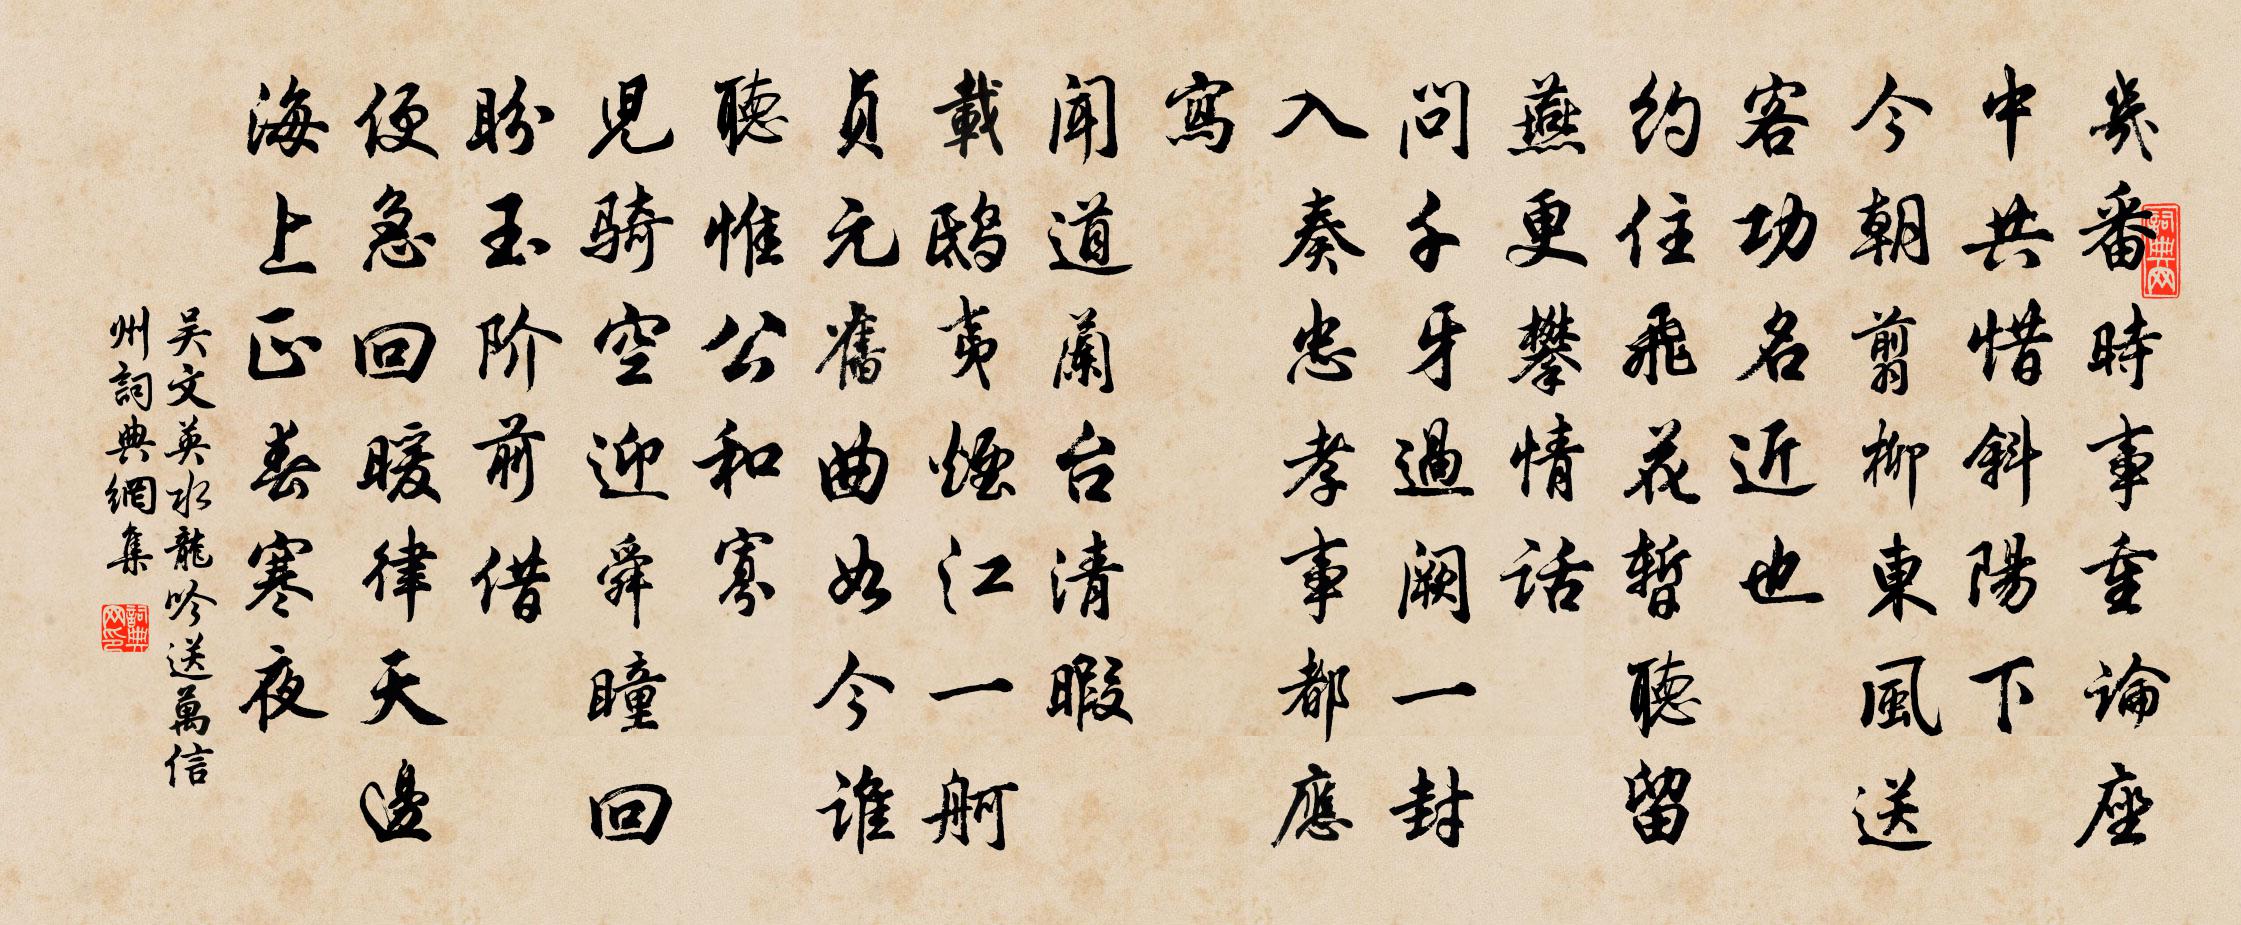 幾番時事重論座
中共惜斜陽下
今朝剪柳東風送
客功名近也
約住飛花暫聽留
燕更攀情話
問千牙過阙一封
入奏忠孝事都應
寫
闻道蘭台清暇
載鴟夷煙江一舸
貞元舊曲如今谁
聽惟公和寡
児骑空迎舜瞳回
盼玉阶前借
便急回暖律天邊
海上正春寒夜
吴文英水龍吟送萬信
州詞典網集
詞典网
詞典网印